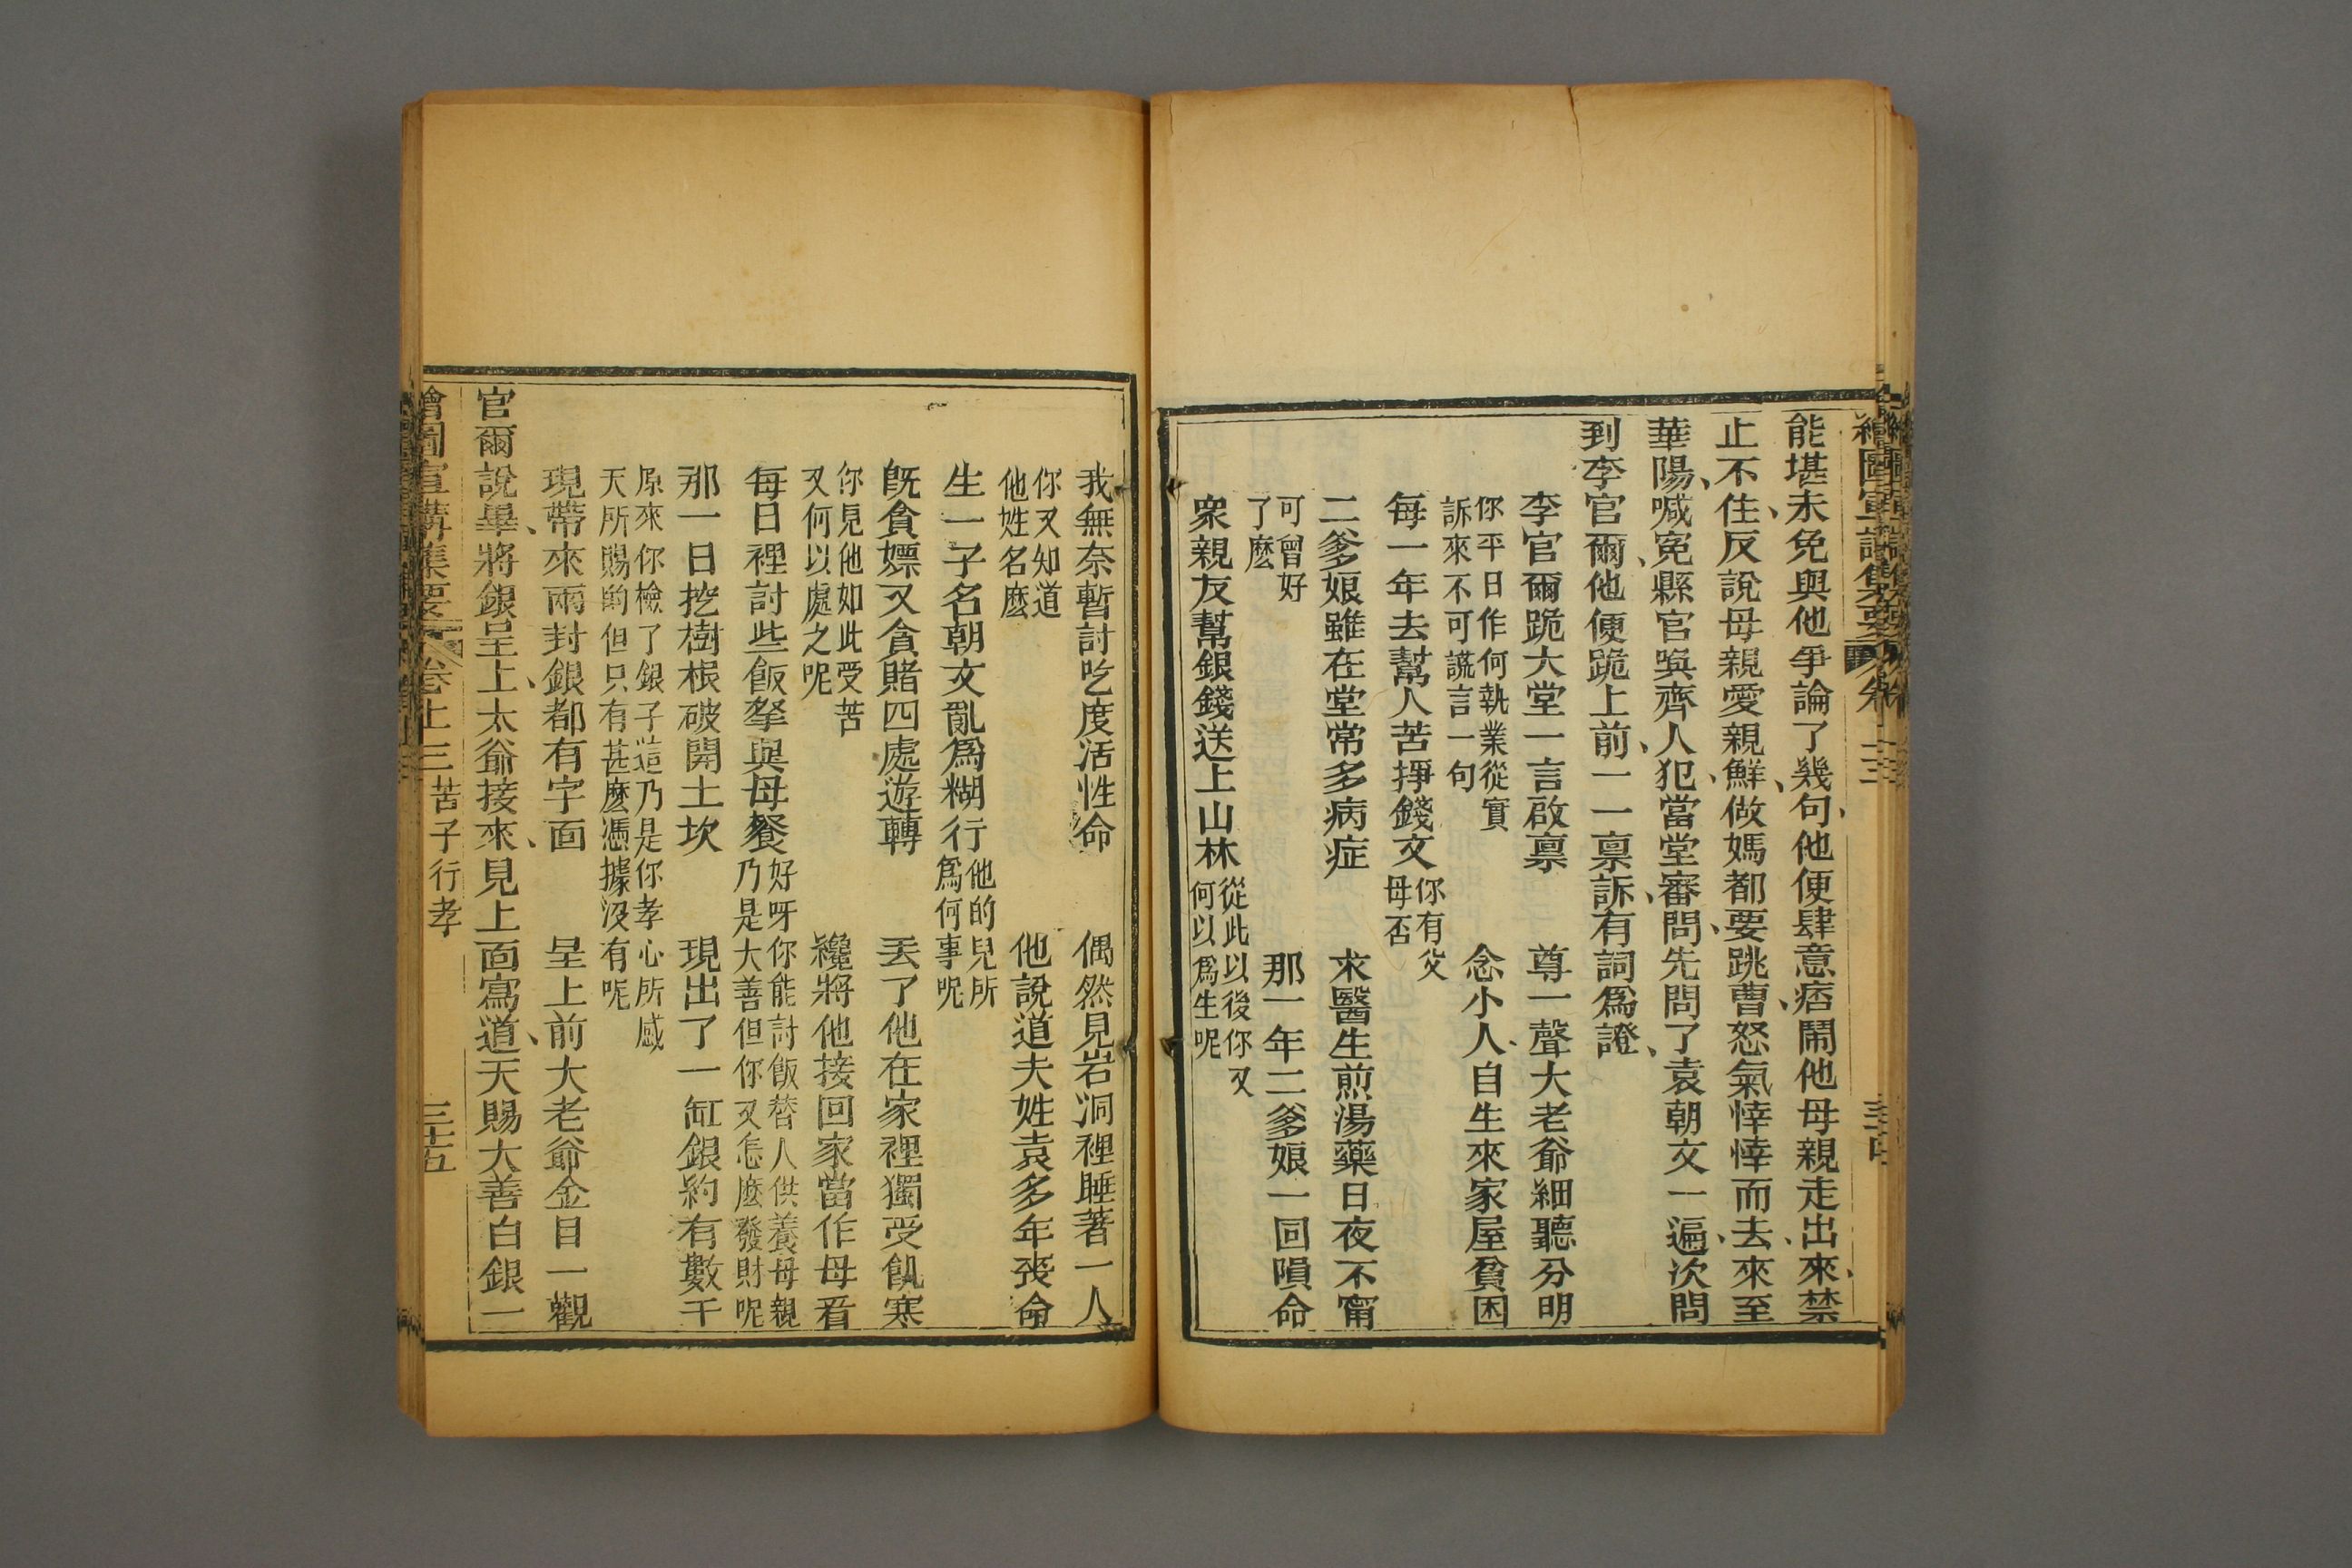 能堪未免與他爭論了幾句他便肆意痞鬧他母親走出來禁
止不住反說母親愛親鮮做媽都要跳曹怒氣悻悻而去來至
華陽喊寃縣官喚齊人犯當堂審問先問了袁朝文一遍次問
到李官爾他便跪上前一一禀訴有詞爲證
李官爾跪大堂一言啟禀 尊一聲大老爺細聽分明
你平日作何執業從實
訴來不可謊言一句
念小人自生來家屋貧困
每一年去幫人苦掙錢文
你有父
母否
二爹娘雖在堂常多病症 求醫生煎湯藥日夜不甯
可曾好
了麽
那一年二爹娘一回隕命
衆親友幫銀錢送上山林
從此以後你又
何以爲生呢
我無奈暫討吃度活性命 偶然見岩洞裡睡著一人
你又知道
他姓名麽
他說道夫姓袁多年喪命
生一子名朝文亂爲糊行
他的兒所
爲何事呢
旣貪嫖又貪賭四處遊轉 丢了他在家裡獨受飢寒
你見他如此受苦
又何以處之呢
纔將他接回家當作母看
每日裡討些飯孥與母餐
好呀你能討飯替人供養母親
乃是大善但你又怎麽發財呢
那一日挖樹根破開土坎 現出了一缸銀約有數千
原來你檢了銀子這乃是你孝心所感
天所賜的但只有甚麽憑據沒有呢
現帶來兩封銀都有字面 呈上前大老爺金目一觀
官爾說畢將銀呈上太爺接來見上面寫道天賜大善白銀一
繪圖宣講集要 卷十三 苦子行孝 三十五